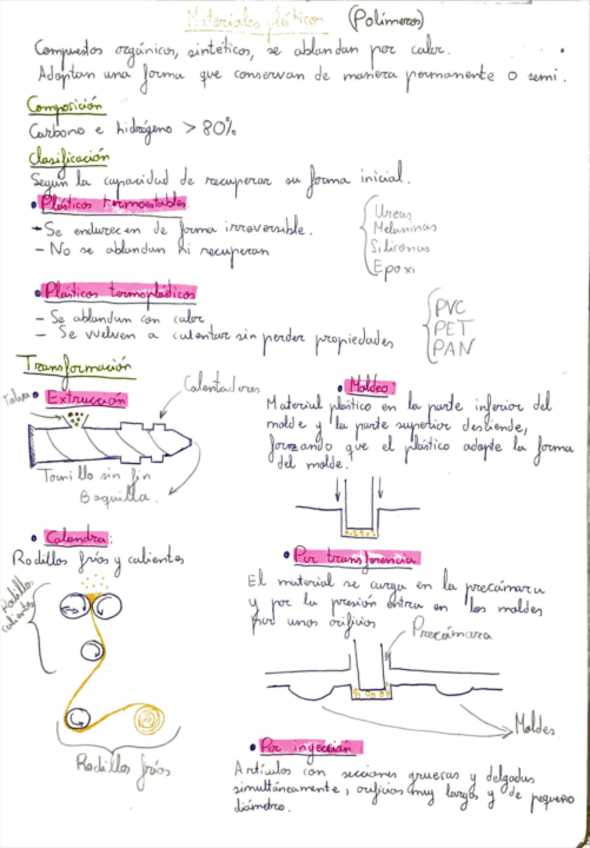 Materiales plásticos (Polímeros)
Compuestos orgánicos, sintéticos, se ablandan por calor.
Adoptan una forma que conservan de manera permanente o semi.
Composición
Carbono e hidrógeno > 80%
Clasificación
Según la capacidad de recuperar su forma inicial.
• Plásticos termoestables
- Se endurecen de forma irreversible.
- No se ablandan ni recuperan
Ureas
Melaninas
Siliconas
Epoxi
• Plásticos termoplásticos
- Se ablandan con calor
- Se vuelven a calentar sin perder propiedades
PVC
PET
PAN
Transformación
• Extrucción
Tolva
Calentadores
Tornillo sin fin
Boquilla.
• Moldeo:
Material plástico en la parte inferior del
molde y la parte superior desciende,
forzando que el plástico adopte la forma
del molde.
• Calandra:
Rodillos fríos y calientes
Rodillos
calientes
Rodillos fríos
• Por transferencia
El material se carga en la precámara
y por la presión entra en los moldes
por unos orificios
Precámara
Moldes
• Por inyección
Artículos con secciones gruesas y delgadas
simultáneamente, orificios muy largos y de pequeño
diámetro.